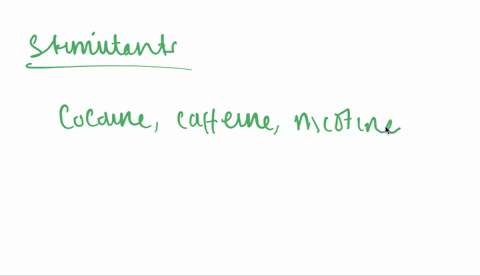 Stimulants
Cocaine, caffeine, nicotine